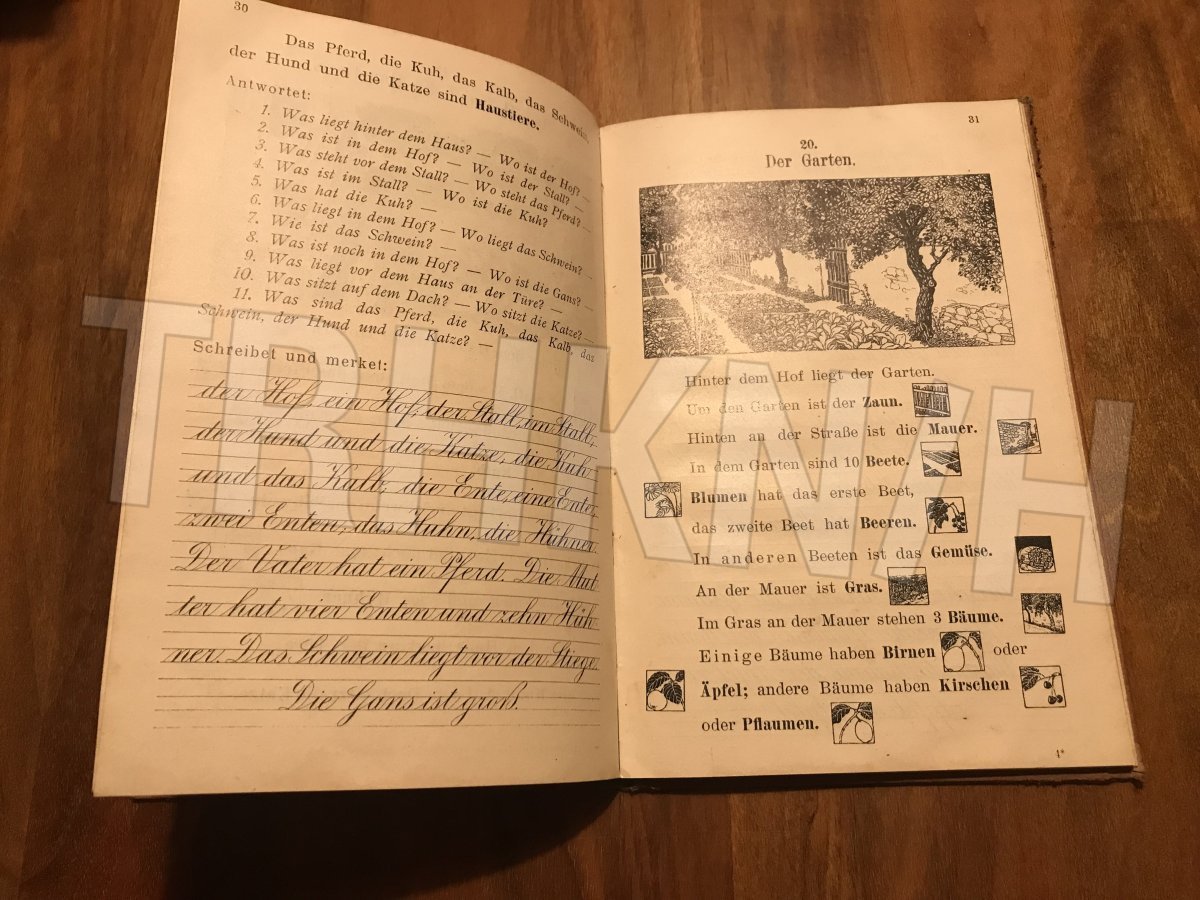 30
Das Pferd, die Kuh, das Kalb, das Schwein,
der Hund und die Katze sind Haustiere.
Antwortet:
1. Was liegt hinter dem Haus? — Wo ist der Hof? —
2. Was ist in dem Hof? — Wo ist der Stall? —
3. Was steht vor dem Stall? — Wo steht das Pferd? —
4. Was ist im Stall? — Wo ist die Kuh?
5. Was hat die Kuh? —
6. Was liegt in dem Hof? — Wo liegt das Schwein? —
7. Wie ist das Schwein? —
8. Was ist noch in dem Hof? — Wo ist die Gans? —
9. Was liegt vor dem Haus an der Türe? —
10. Was sitzt auf dem Dach? — Wo sitzt die Katze? —
11. Was sind das Pferd, die Kuh, das Kalb, das
Schwein, der Hund und die Katze? —
Schreibet und merket:
der Hof, ein Hof, der Stall, im Stall,
der Hund und die Katze, die Kuh
und das Kalb, die Ente, eine Ente,
zwei Enten, das Huhn, die Hühner.
Der Vater hat ein Pferd. Die Mut
ter hat vier Enten und zehn Hüh
ner. Das Schwein liegt vor der Stiege.
Die Gans ist groß.
31
20.
Der Garten.
Hinter dem Hof liegt der Garten.
Um den Garten ist der Zaun.
Hinten an der Straße ist die Mauer.
In dem Garten sind 10 Beete.
Blumen hat das erste Beet,
das zweite Beet hat Beeren.
In anderen Beeten ist das Gemüse.
An der Mauer ist Gras.
Im Gras an der Mauer stehen 3 Bäume.
Einige Bäume haben Birnen oder
Äpfel; andere Bäume haben Kirschen
oder Pflaumen.
4*